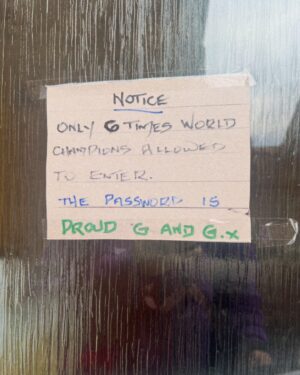 NOTICE
ONLY 6 TIMES WORLD
CHAMPIONS ALLOWED
TO ENTER.
THE PASSWORD IS
PROUD G AND G.x